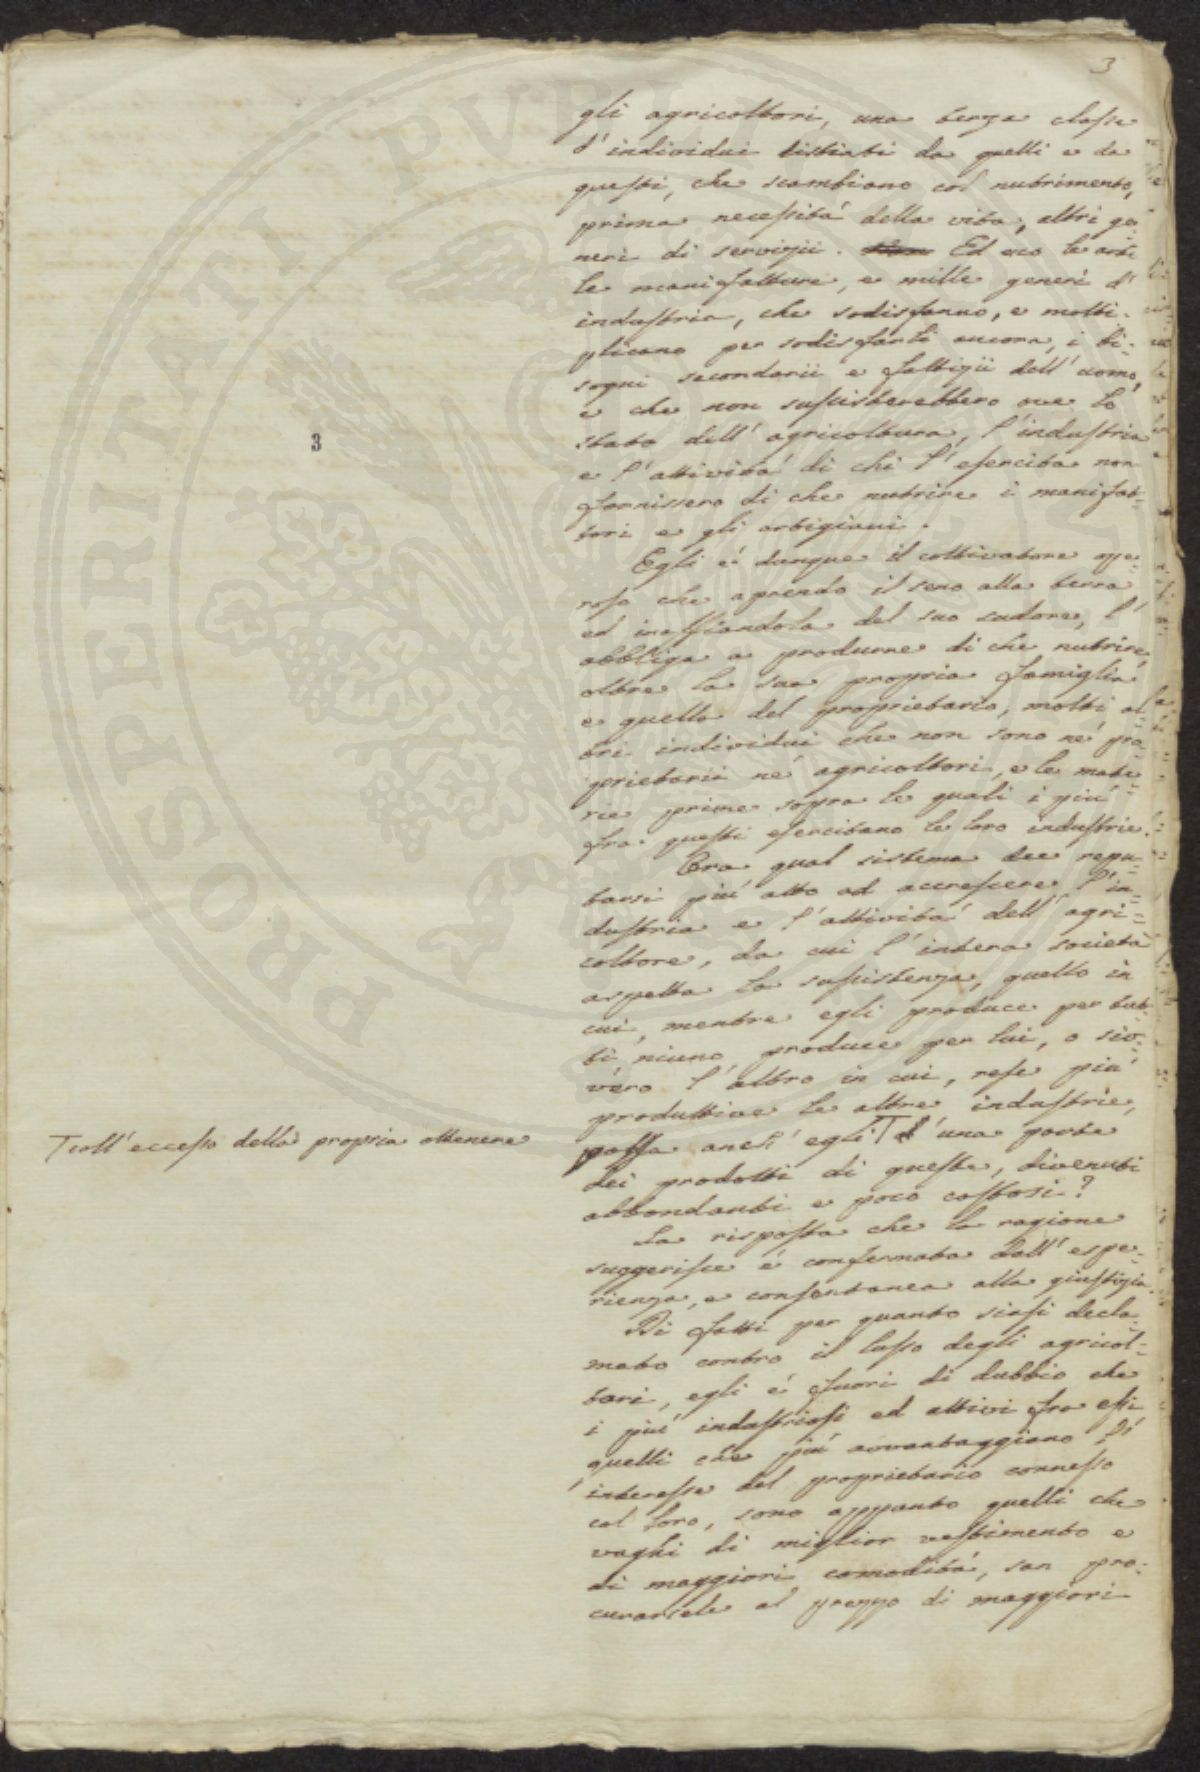 3
gli agricoltori, una terza classe
d'individui distinti da quelli e da
questi, che scambiano col nutrimento,
prima necessità della vita, altri ge-
neri di servizii. Ed ecco le arti
le manifatture, e mille generi d'
industria, che sodisfanno, e molti-
plicano per sodisfarli ancora, i bi-
sogni secondarii e fattizii dell'uomo,
e che non sussisterebbero ove lo
stato dell'agricoltura, l'industria
e l'attività di chi l'esercita non
fornissero di che nutrire i manifat-
tori e gli artigiani.
Egli é dunque il coltivatore ope-
roso che aprendo il seno alla terra
ed inaffiandola del suo sudore, l'
obbliga a produrne di che nutrire,
oltre la sua propria famiglia
e quella del proprietario, molti al-
tri individui che non sono né pro-
prietarii né agricoltori, e le mate-
rie prime sopra le quali i più
fra questi esercitano le loro industrie.
Ora qual sistema dee repu-
tarsi più atto ad accrescere l'in-
dustria e l'attività dell'agri-
coltore, da cui l'intera società
aspetta la sussistenza, quello in
cui, mentre egli produce per tut-
ti, niuno produce per lui, o siv-
vero l'altro in cui, rese più
produttive le altre industrie,
possa anch'egli T d'una parte
dei prodotti di queste, divenuti
abbondanti e poco costosi?
La risposta che la ragione
suggerisce é confermata dall'espe-
rienza, e consentanea alla giustizia.
Di fatti per quanto siasi decla-
mato contro il lusso degli agricol-
tori, egli é fuori di dubbio che
i più industriosi ed attivi fra essi
quelli che più avvantaggiano l'
interesse del proprietario connesso
col loro, sono appunto quelli che
vaghi di miglior vestimento e
di maggiori comodità, san pro-
curarsele al prezzo di maggiori
T coll'eccesso della propria ottenere
3
PROSPERITATI PVBL